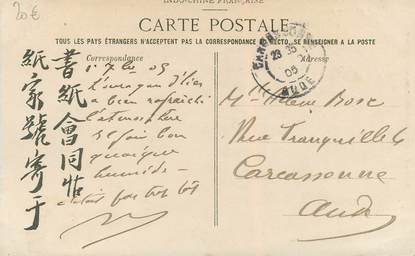 20€
INDO-CHINE FRANÇAISE
CARTE POSTALE
TOUS LES PAYS ÉTRANGERS N'ACCEPTENT PAS LA CORRESPONDANCE AU RECTO, SE RENSEIGNER A LA POSTE
Correspondance
Adresse
書紙會同帖
紙家號寄于
1 7bre 05
L'orage d'hier
a bien rafraichi
l'atmosphère
il fait bon
quoique
humide
pas trop tôt
CARCASSONNE
05
AUDE
Bosc
Rue Tranquille 4
Carcassonne
Aude